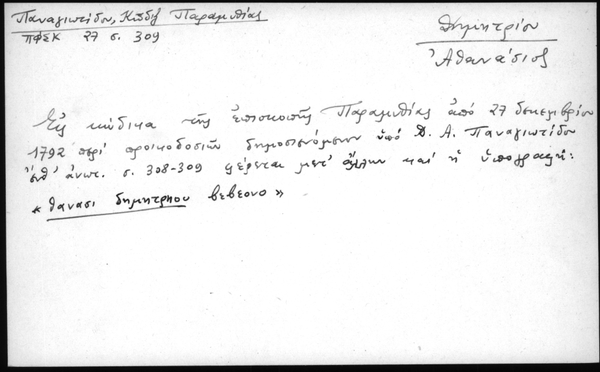 Παναγιωτίδου, Κώδιξ Παραμυθίας
ΠΦΣΚ 27 σ. 309
Δημητρίου
Ἀθανάσιος
Εἰς κώδικα τῆς ἐπισκοπῆς Παραμυθίας ἀπό 27 δεκεμβρίου
1792 περί προικοδοσιῶν δημοσιευόμενον ὑπό Δ. Α. Παναγιωτίδου
ἔνθ' ἀνωτ. σ. 308-309 φέρεται μετ' ἄλλων καί ἡ ὑπογραφή:
« θανασι δημητρηου βεβεονο »